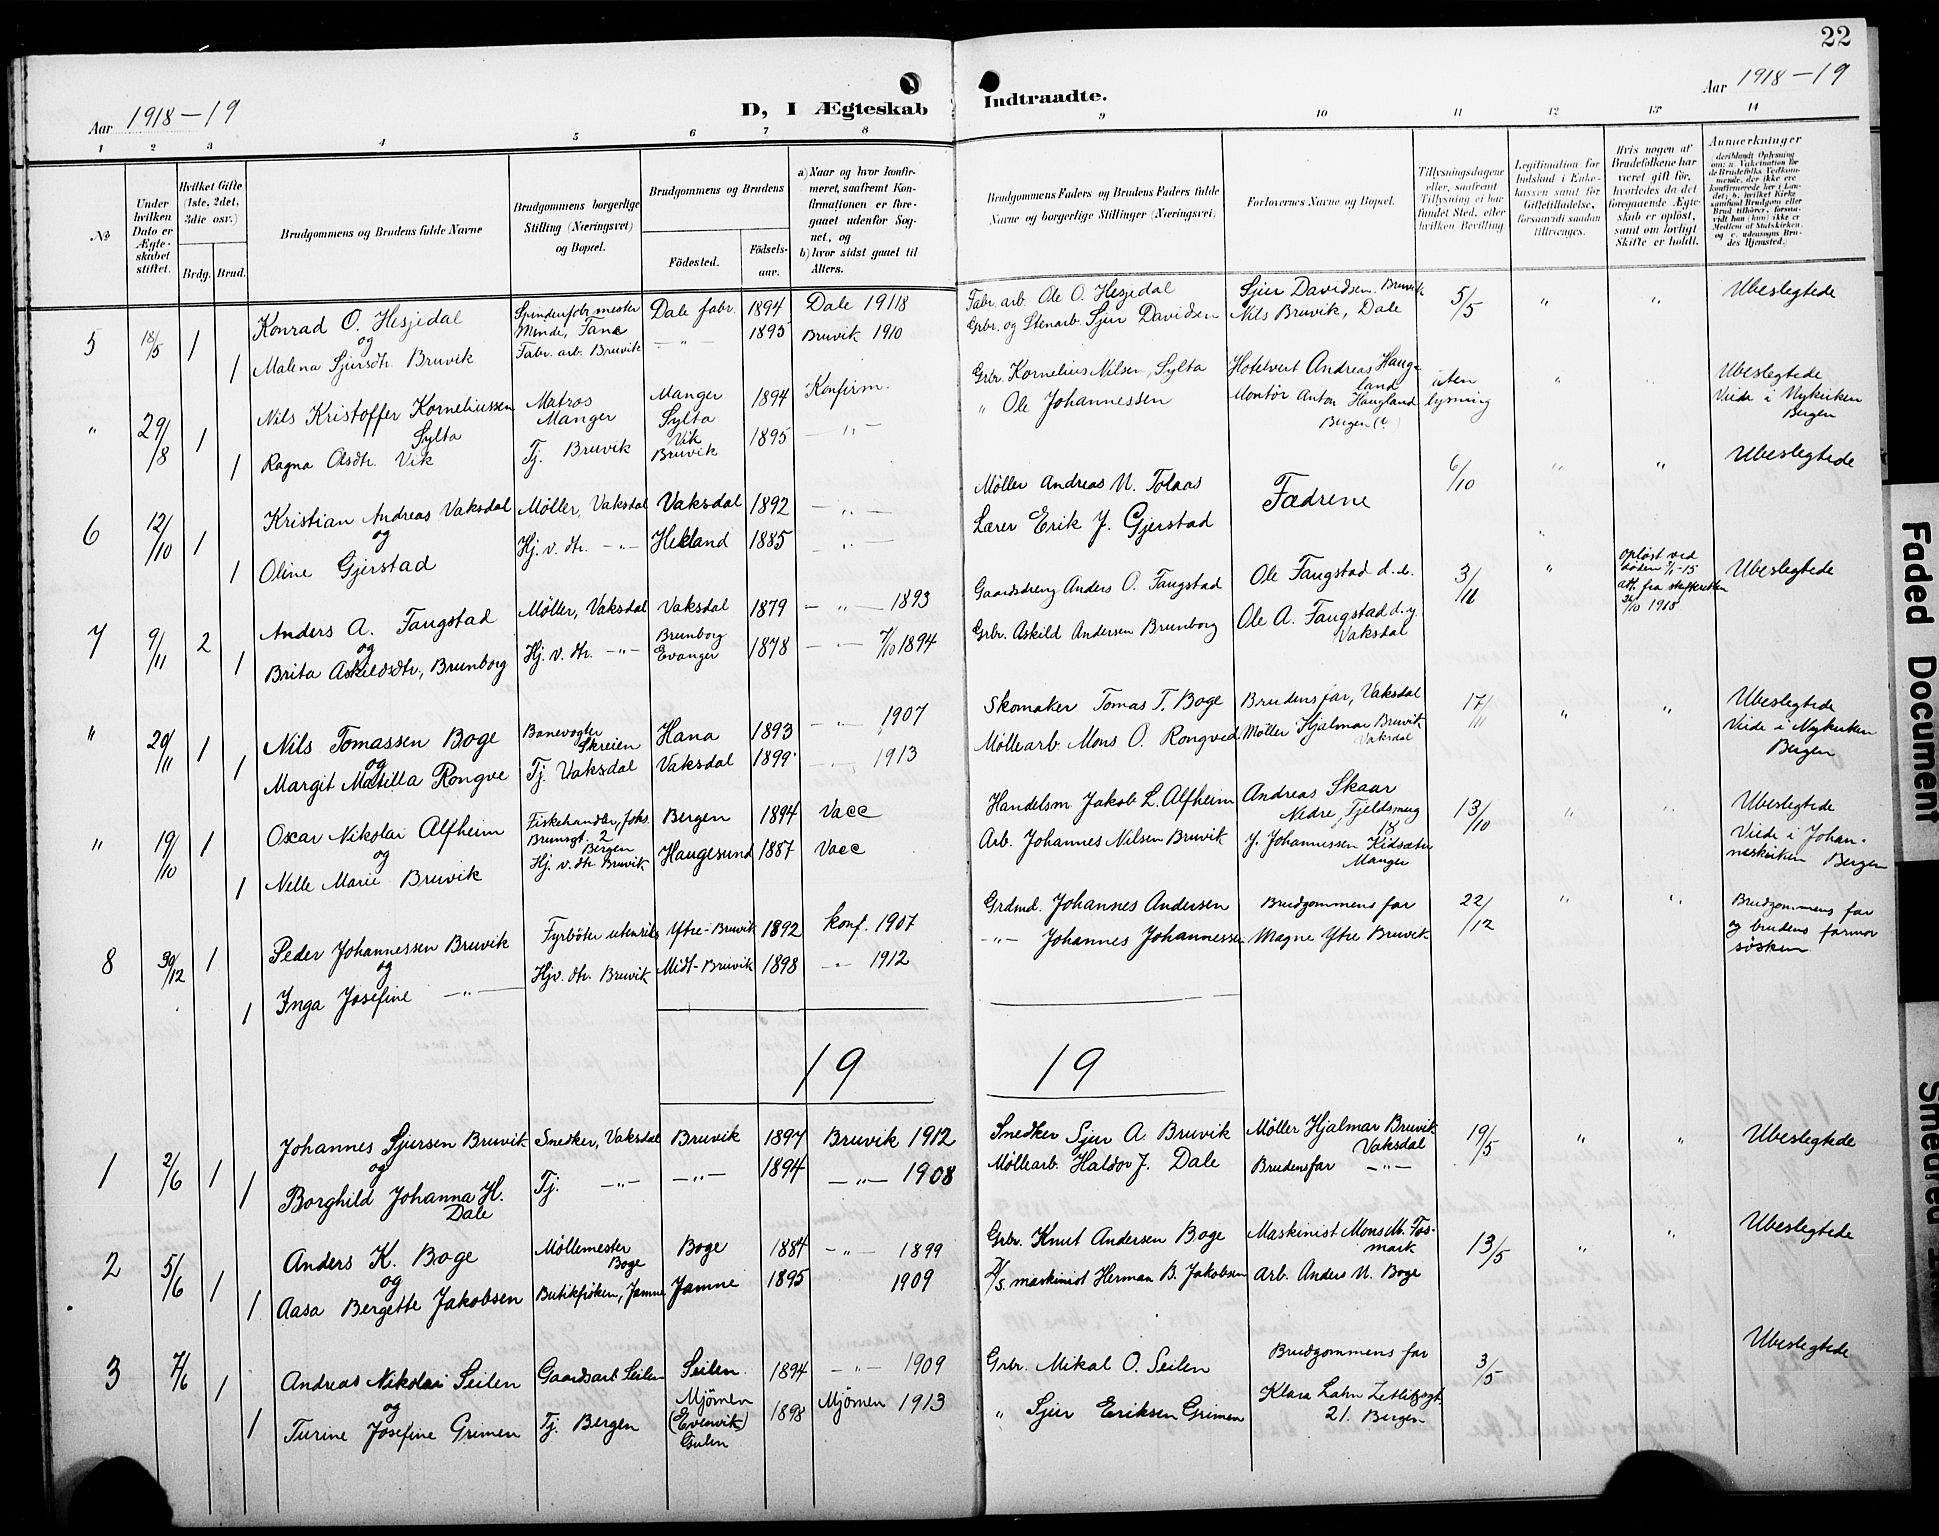 22
Aar 1918-19
D, I Ægteskab
Indtraadte.
Aar 1918-19
1 2 3 4 5 6 7 8
9 10 11 12 13 14
No
Under hvilken Dato er Ægteskabet stiftet.
Hvilket Gifte (1ste, 2det, 3die osv.)
Brdg. Brud.
Brudgommens og Brudens fulde Navne
Brudgommens borgerlige Stilling (Næringsvei) og Bopæl.
Brudgommens og Brudens
Födested.
Födselsaar.
a) Naar og hvor konfirmeret, saafremt Konfirmationen er foregaaet udenfor Sognet, og
b) hvor sidst gaaet til Alters.
Brudgommens Faders og Brudens Faders fulde Navne og borgerlige Stillinger (Næringsvei.
Forlovernes Navne og Bopæl.
Tillysningsdagene eller, saafremt Tillysning ei har fundet Sted, efter hvilken Bevilling.
Legitimation for Indskud i Enkekassen samt for Giftetilladelse, forsaavidt saadan tiltrænges.
Hvis nogen af Brudefolkene har været gift før, hvorledes da det foregaaende Ægteskab er oplöst, samt om lovligt Skifte er holdt.
Anmerkninger
5 18/5 1 Konrad O. Hesjedal Dale fabr. 1894 Dale 19118 Fabr. arb. Ole O. Hesjedal Sjur Davidsen. Bruvik 5/5 " " Ubeslegtede
og Minde, Fana
1 Malena Sjursdtr. Bruvik Fabr. arb. Bruvik —"— 1895 Bruvik 1910 Grbr. og Stenarb. Sjur Davidsen Nils Bruvik, Dale
" 29/8 1 Nils Kristoffer Korneliussen Sylta Matros Manger Manger Sylta 1894 Konfirm. Grbr. Kornelius Nilsen, Sylta Hotelvert Andreas Haugland uten lysning " Ubeslegtede
1 Ragna Olsdtr. Vik Tj. Bruvik Vik Bruvik 1895 —"— " Ole Johannessen Montør Anton Haugland Bergen Viede i Nykirken Bergen
6 12/10 1 Kristian Andreas Vaksdal Møller, Vaksdal Vaksdal 1892 —"— Møller Andreas N. Tolaas Fædrene 6/10 " " Ubeslegtede
og
1 Oline Gjerstad Hj. v. dtr. —"— Hekland 1885 —"— Lærer Erik J. Gjerstad
7 9/11 2 Anders A. Faugstad Møller, Vaksdal Vaksdal 1879 —"— 1893 Gaardsdreng Anders O. Faugstad Ole Faugstad d.e. 3/11 " opløst ved døden att. fra skifteretten 1918 Ubeslegtede
og
1 Brita Askildsdtr, Brunborg Hj. v. dtr. —"— Brunborg Evanger 1878 —"— 7/10 1894 Grbr. Askild Andersen Brunborg Ole A. Faugstad d.y. Vaksdal
" 29/11 1 Nils Tomassen Boge Banevogter Skreien Hana 1893 —"— 1907 Skomaker Tomas T. Boge Brudens far, Vaksdal 17/11 " " Ubeslegtede
og
1 Margit Matilla Rongve Tj. Vaksdal Vaksdal 1899 —"— 1913 Møllearb. Mons O. Rongved Møller Hjalmar Bruvik Vaksdal Viede i Nykirken Bergen
" 19/10 1 Oscar Nikolai Alfheim Fiskehandler, Johs. Brunsgt 2 Bergen Bergen 1894 Vacc Handelsm Jakob L. Alfheim Andreas Skaar Nedre Fjeldsmug 18 13/10 " Ubeslegtede
og
1 Nelle Marie Bruvik Hj. v. dtr. Bruvik Haugesund 1887 Vacc Arb. Johannes Nilsen Bruvik J. Johannessen Manger Viede i Johanneskirken Bergen
8 30/12 1 Peder Johannessen Bruvik Fyrbøter utenriks Ytre-Bruvik 1892 konf. 1907 Grdmd. Johannes Andersen Brudgommens far 22/12 " " Brudgommens far og brudens farmor søsken
og
1 Inga Josefine —"— Hjv. dtr. Bruvik Midt-Bruvik 1898 —"— 1912 —"— Johannes Johannessen Magne Ytre Bruvik
19 19
1 2/6 1 Johannes Sjursen Bruvik Snedker, Vaksdal Bruvik 1897 Bruvik 1912 Snedker Sjur A. Bruvik Møller Hjalmar Bruvik Vaksdal 19/5 " " Ubeslegtede
og
1 Borghild Johanna H. Dale Tj. —"— —"— 1894 —"— 1908 Møllearb. Haldor J. Dale Brudens far —"—
2 5/6 1 Anders K. Boge Møllemester Boge Boge 1884 —"— 1899 Grbr. Knut Andersen Boge Maskinist Mons M. Fosmark 13/5 " " Ubeslegtede
og
1 Aasa Bergette Jakobsen Butikfrøken, Jamne Jamne 1895 1909 D/S maskinist Herman B. Jakobsen Arb. Anders N. Boge
3 7/6 1 Andreas Nikolai Seilen Gaardsarb. Seilen Seilen 1894 —"— 1909 Grbr. Mikal O. Seilen Brudgommens far 3/5 Ubeslegtede
og
1 Turine Josefine Grimen Tj. Bergen Mjömen (Evenvik) Gulen 1898 Mjömen 1913 " Sjur Eriksen Grimen Klara Lahn Zetlitzgt. 21. Bergen
Faded Document